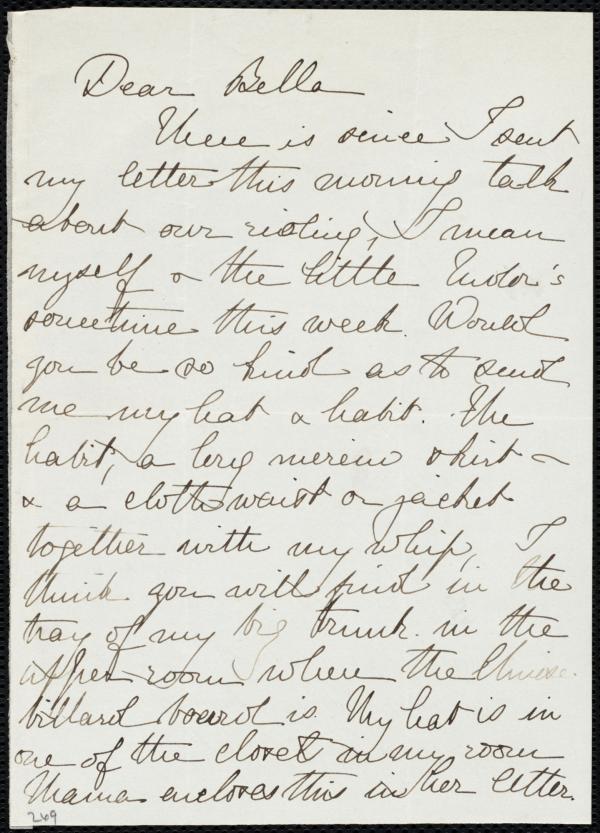 Dear Bella
There is since I sent
my letter this morning talk
about our riding, I mean
myself & the little
sometime this week. Would
you be so kind as to send
me my hat & habit. The
habit, a long merino skirt –
& a cloth waist or jacket
together with my whip, I
think you will find in the
tray of my big trunk in the
upper room where the Chinese
billard board is. My hat is in
one of the closets in my room
Mama encloses this in her letter.
249